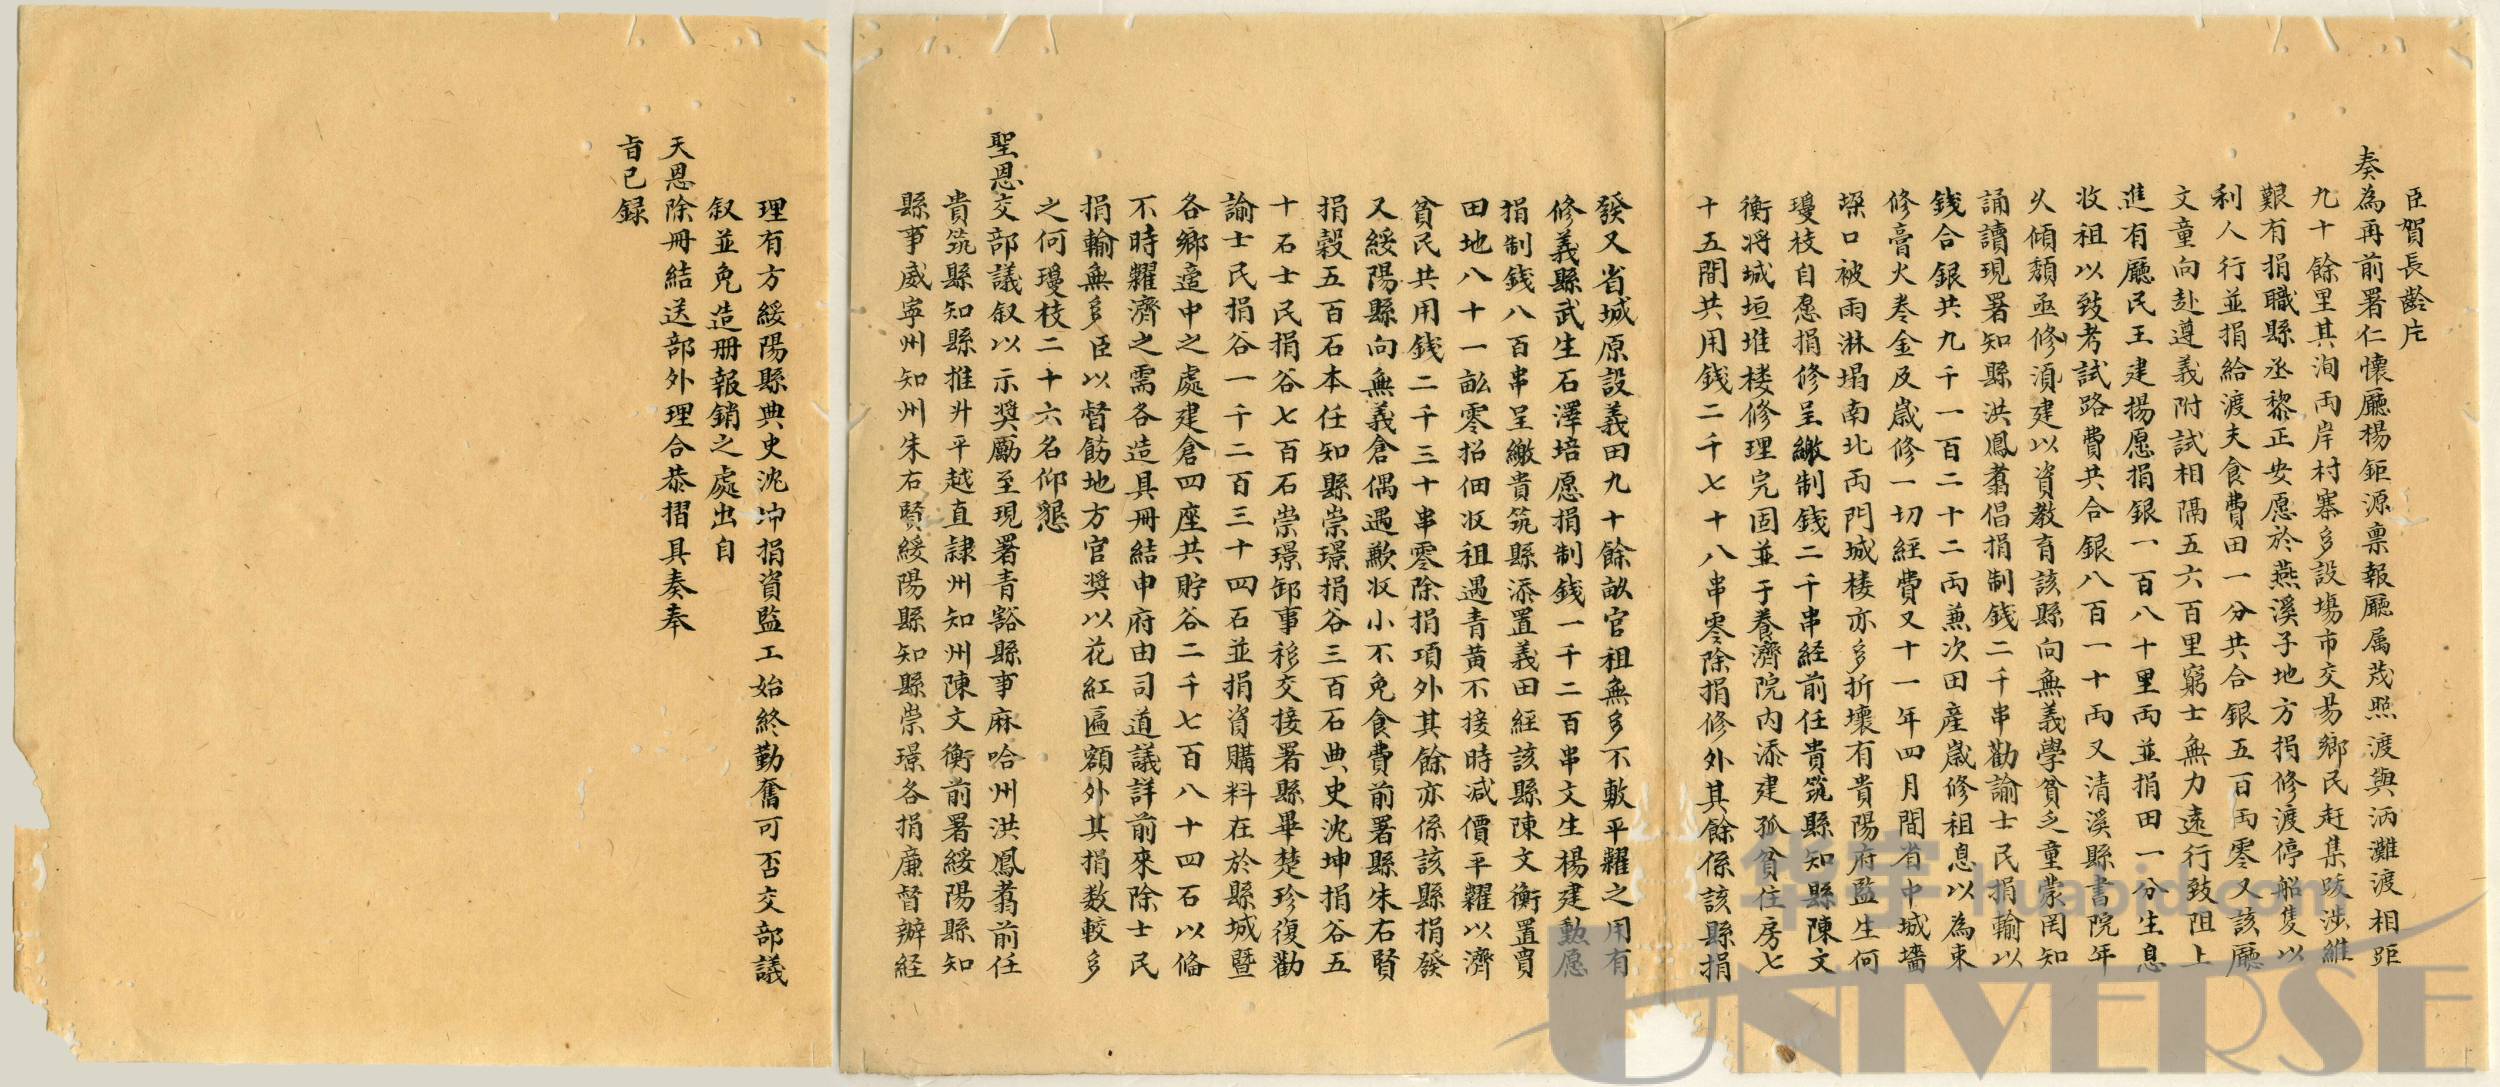 臣賀長齡片
奏為再前署仁懷廳楊鉅源禀報廳属茂照渡與沔灘渡相距
九十餘里其洵兩岸村寨多設塲市交易鄉民赶集跋涉維
艱有捐職縣丞黎正安愿於燕溪子地方捐修渡停船隻以
利人行並捐給渡夫食費田一分共合銀五百兩零又該廳
文童向赴遵義附試相隔五六百里窮士無力遠行致阻上
進有廳民王建揚愿捐銀一百八十里兩並捐田一分生息
收租以致考試路費共合銀八百一十兩又清溪縣書院年
久傾頹亟修湏建以資教育該縣向無義學貧乏童蒙罔知
誦讀現署知縣洪鳳翥倡捐制錢二千串勸諭士民捐輸以
錢合銀共九千一百二十二兩兼次田産歲修租息以為束
修膏火奉金及歲修一切經費又十一年四月間省中城墻
垛口被雨淋塌南北兩門城楼亦多折壊有貴陽府監生何
瓊枝自愿捐修呈繳制錢二千串經前任貴筑縣知縣陳文
衡将城垣堆楼修理完固並于養濟院内添建孤貧住房七
十五間共用錢二千七十八串零除捐修外其餘係該縣捐
發又省城原設義田九十餘畝官租無多不敷平糶之用有
修義縣武生石澤培愿捐制錢一千二百串文生楊建勲愿
捐制錢八百串呈繳貴筑縣添置義田經該縣陳文衡置買
田地八十一畝零招佃收租遇青黃不接時減價平糶以濟
貧民共用錢二千三十串零除捐項外其餘亦係該縣捐發
又綏陽縣向無義倉偶遇歉收小不免食費前署縣朱右賢
捐穀五百石本任知縣崇璟捐谷三百石典史沈坤捐谷五
十石士民捐谷七百石崇璟卸事移交接署縣畢楚珍復勸
諭士民捐谷一千二百三十四石並捐資購料在於縣城暨
各鄉適中之處建倉四座共貯谷二千七百八十四石以俻
不時糶濟之需各造具册結申府由司道議詳前來除士民
捐輸無多臣以督飭地方官奬以花紅匾額外其捐数較多
之何瓊枝二十六名仰懇
聖恩交部議叙以示奬勵至現署青谿縣事麻哈州洪鳳翥前任
貴筑縣知縣推升平越直隷州知州陳文衡前署綏陽縣知
縣事威寧州知州朱右賢綏陽縣知縣崇璟各捐廉督辦經
理有方綏陽縣典史沈坤捐資監工始終勤奮可否交部議
叙並免造册報銷之處出自
天恩除册結送部外理合恭摺具奏奉
旨已録
华宇 huabid.com
UNIVERSE